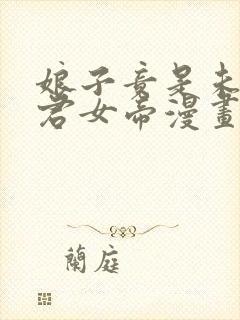 娘子竟是未
君女帝漫畫
蘭庭